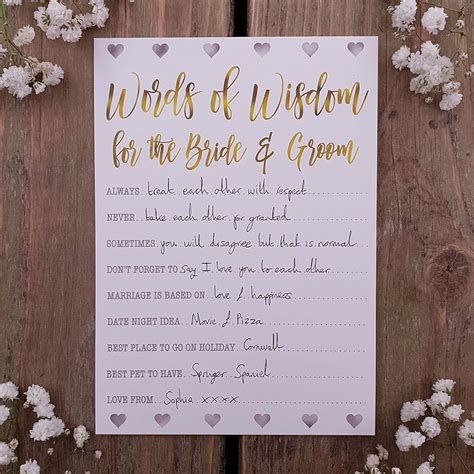 Words of Wisdom
for the Bride & Groom
ALWAYS treat each other with respect
NEVER take each other for granted
SOMETIMES you will disagree but that is normal
DON'T FORGET TO say I love you to each other
MARRIAGE IS BASED ON love & happiness
DATE NIGHT IDEA Movie & Pizza
BEST PLACE TO GO ON HOLIDAY Cornwall
BEST PET TO HAVE Springer Spaniel
LOVE FROM Sophie xxxx